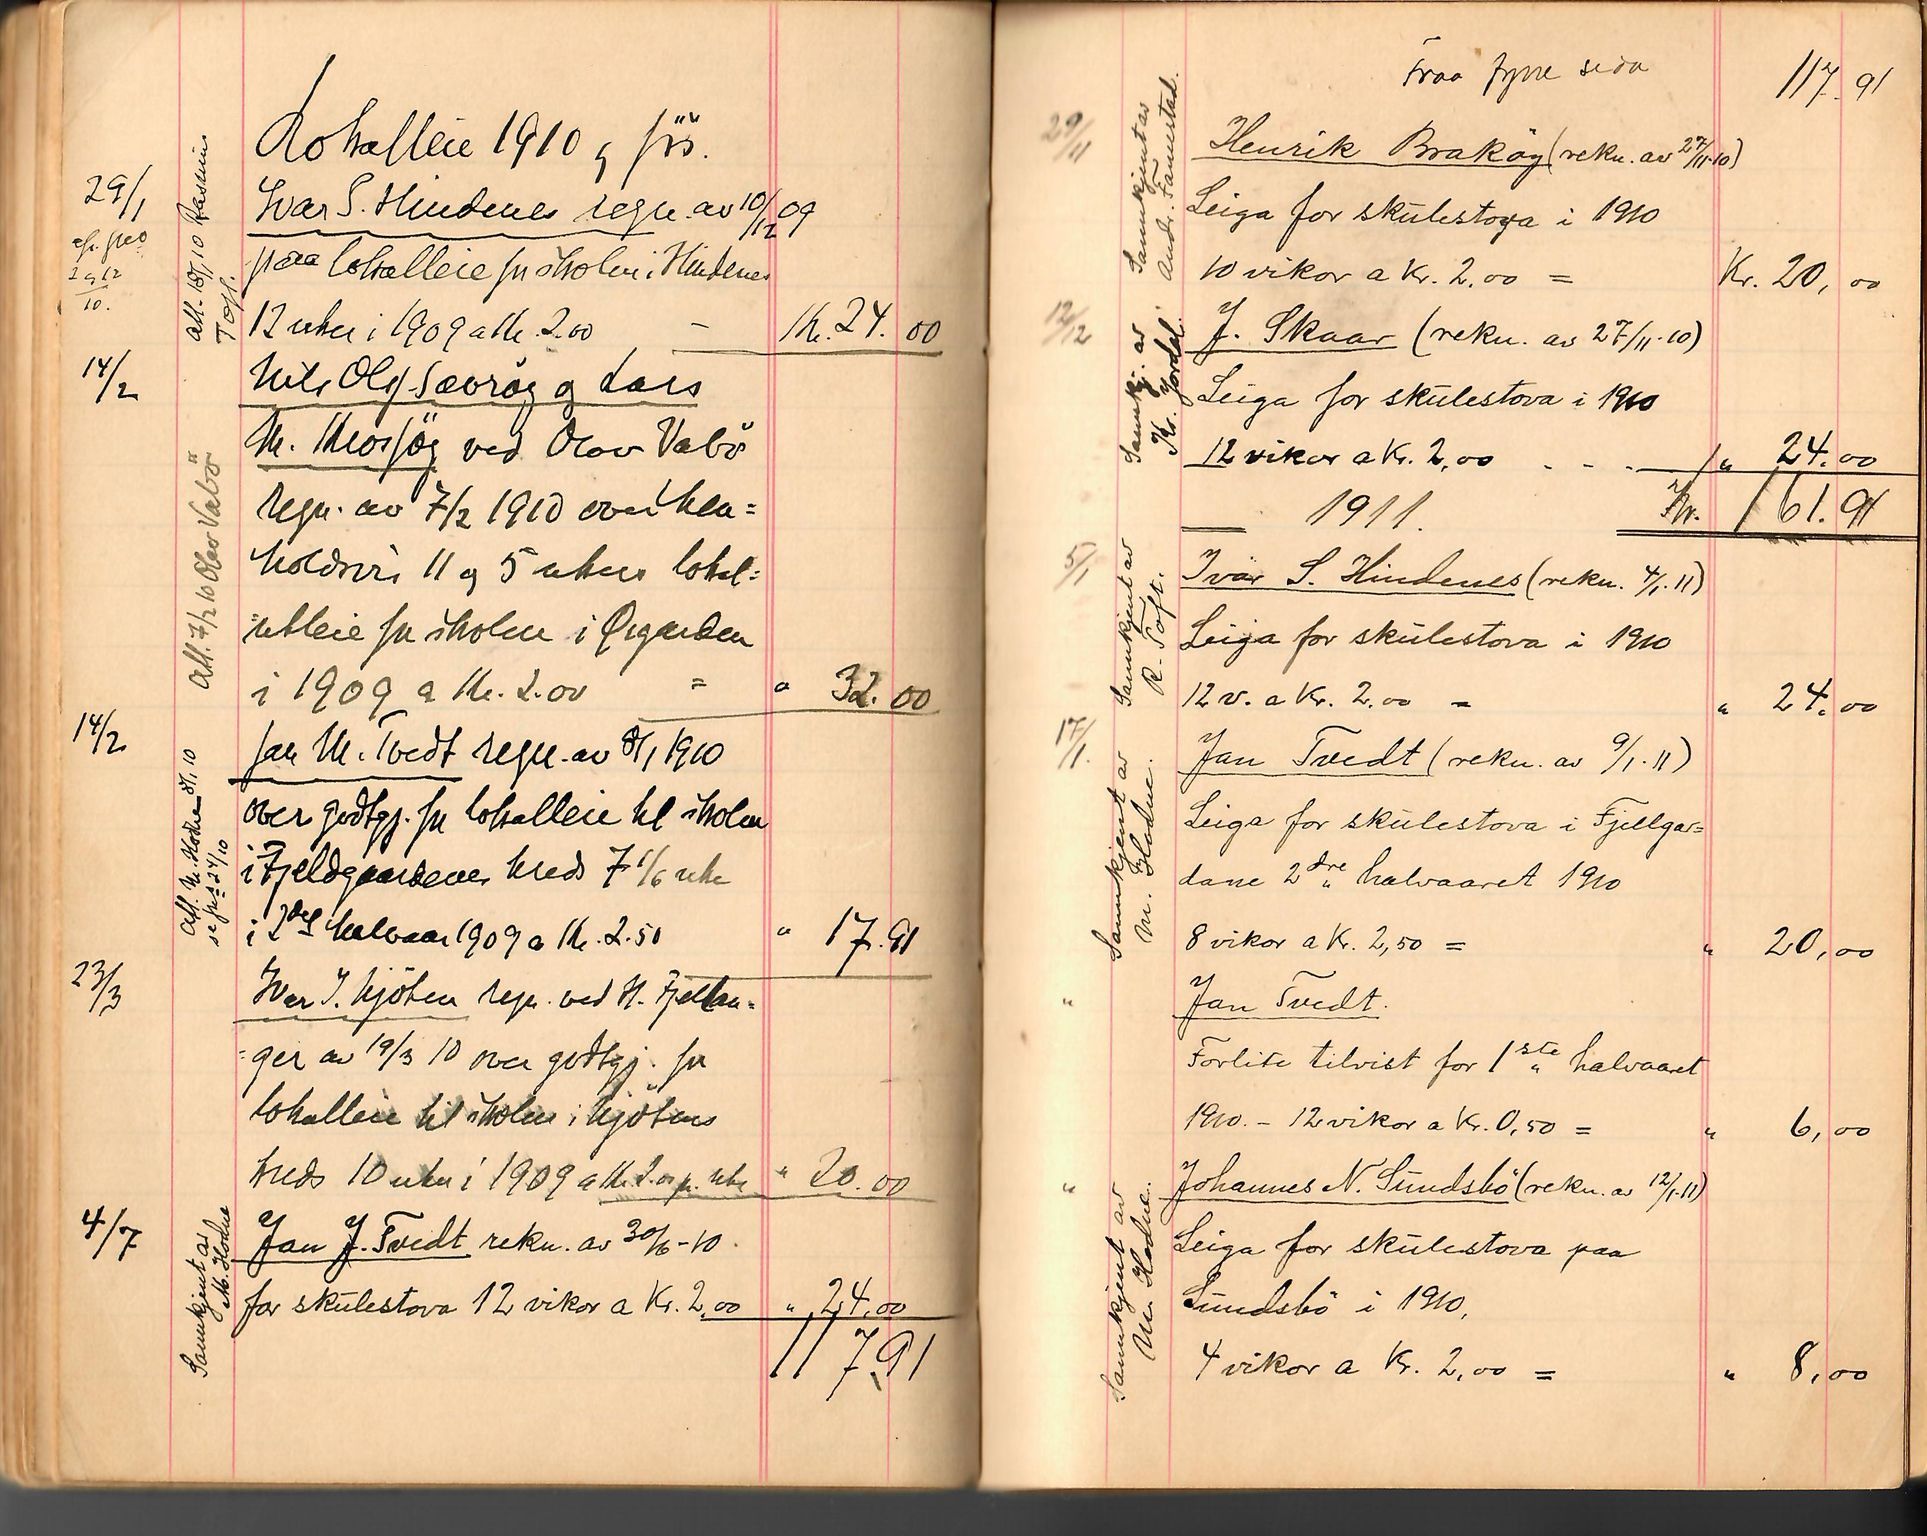 Lokalleie 1910 og før.
29/1
Ivar S. Hindenes regn. av 10/12 09
paa lokalleie for skolen i Hindenes
12 uker i 1909 a Kr. 2.00 – Kr. 24.00
Att. 18/1 10 Rasmus
Toft.
14/2
Nils Olsf. Sævrøy og Lars
M. Mosføy ved Olav Vabö
regn. av 7/2 1910 over hen=
holdsvis 11 og 5 ukers lokal=
utleie for skolen i Øygarden
i 1909 a Kr. 2.00 = " 32.00
Att. 7/2 10 Olav Vabö
14/2
Jan M. Tvedt regn. av 8/1 1910
over godtgj. for lokalleie til skolen
i Fjeldgaardenes kreds 7 1/6 uke
i 2det halvaar 1909 a Kr. 2.50 " 17.91
Att. M. Hodne 8/1 10
23/3
Ivar I. Kjöten regn. ved H. Fjellan=
=ger av 19/3 10 over godtgj. for
lokalleie til skolen i Kjötens
kreds 10 uker i 1909 a Kr. 2.00 pr. uke " 20.00
4/7
Jan J. Tvedt rekn. av 30/6 - 10.
for skulestova 12 vikor a Kr. 2,00 " 24,00
Sannkjent av
M. Hodne
117,91
Fraa fyrre sida 117.91
29/11
Henrik Brakøy (rekn. av 27/11-10)
Leiga for skulestova i 1910
10 vikor a Kr. 2,00 = Kr. 20,00
Sannkjent av
Andr. Famestad.
12/12
J. Skaar (rekn. av 27/11-10)
Leiga for skulestova i 1910
12 vikor a Kr. 2,00 - - - " 24.00
Sannkj. av
K. Jordal.
Kr. 161.91
1911.
5/1
Ivar S. Hindenes (rekn. 4/1. 11)
Leiga for skulestova i 1910
12 v. a Kr. 2.00 = " 24.00
Sannkjent av
R. Toft.
17/1.
Jan Tvedt (rekn. av 9/1. 11)
Leiga for skulestova i Fjellgar=
dane 2dre halvaaret 1910
8 vikor a Kr. 2,50 = " 20,00
Sannkjent av
M. Hodne.
" Jan Tvedt.
Forlite tilvist for 1ste halvaaret
1910. - 12 vikor a Kr. 0,50 = " 6,00
" Johannes N. Sundsbö (rekn. av 12/1. 11)
Leiga for skulestova paa
Sundsbö i 1910,
4 vikor a Kr. 2,00 = " 8,00
Sannkjent av
M. Hodne.